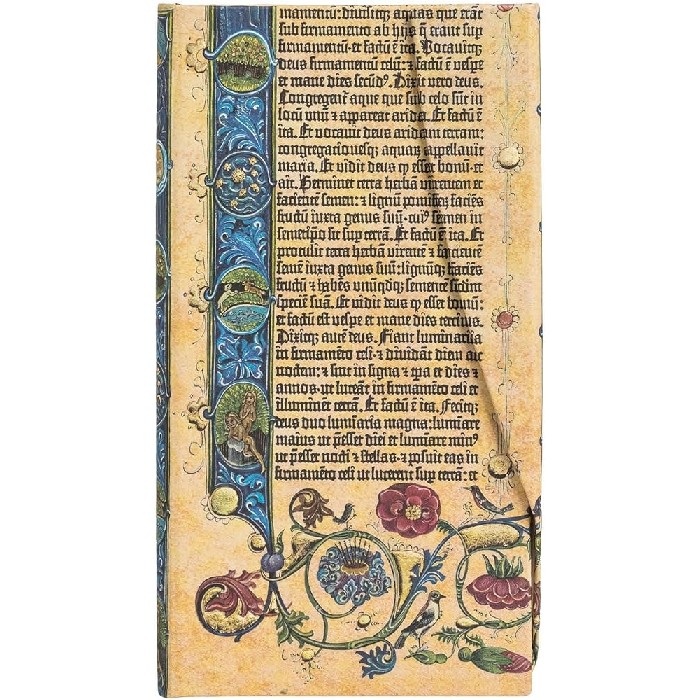 mamentū: divisitqʒ aquas que erāt
sub firmamento ab hijs q̄ erant sup
firmamentū · et factū ē ita. Vocavitqʒ
deus firmamentū celū: ⁊ factū ē vespe
et mane dies secūd⁹. Dixit vero deus.
Congregent̄ aque que sub celo sūt in
locū unū ⁊ appareat arida. Et factū ē
ita. Et vocavit deus aridam terram:
congregationesqʒ aquarū appellavit
maria. Et vidit deus ꝙ esset bonū · et
ait. Germinet terra herbā virentem et
facientē semen: ⁊ lignū pomiferū faciēs
fructū iuxta genus suū · cui⁹ semen in
semetip̄o sit sup terrā. Et factū ē ita. Et
protulit terra herbā virentē ⁊ facientē
semē iuxta genus suū: lignūqʒ faciēs
fructū ⁊ habēs unūqdqʒ sementē scdm
speciē suā. Et vidit deus ꝙ esset bonū:
et factū est vespe et mane dies tercius.
Dixitqʒ autē deus. Fiant luminaria
in firmamēto celi · ⁊ dividāt diem ac
noctem: ⁊ sint in signa ⁊ tp̄a et dies ⁊
annos · ut luceāt in firmamēto celi et
illuminēt terrā. Et factū ē ita. Fecitqʒ
deus duo lumīaria magna: lumīare
maius ut p̄esset diei et lumīare min⁹
ut p̄esset nocti ⁊ stellas · ⁊ posuit eas in
firmamēto celi ut lucerent sup terrā: et